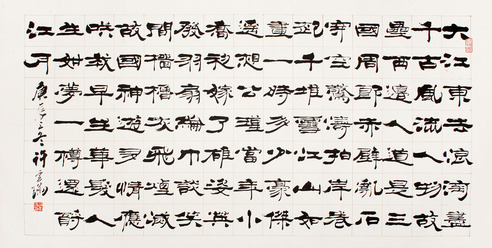 大江東去浪淘盡
千古風流人物故
壘西邊人道是三
國周郎赤壁亂石
穿空驚濤拍岸卷
起千堆雪江山如
畫一時多少豪傑
遙想公瑾當年小
喬初嫁了雄姿英
發羽扇綸巾談笑
間檣櫓灰飛煙滅
故國神遊多情應
咲我早生華髮人
生如夢一樽還酹
江月